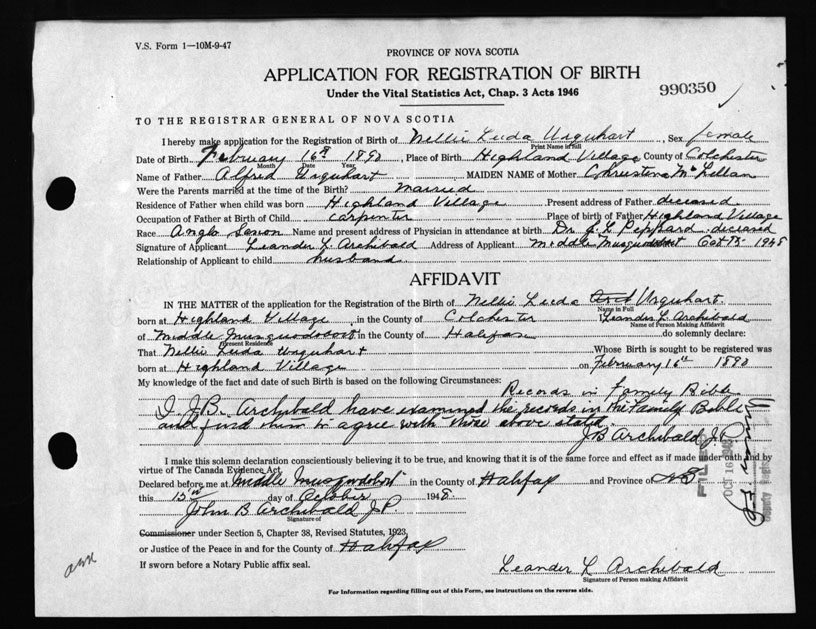 V.S. Form 1—10M-9-47
PROVINCE OF NOVA SCOTIA
APPLICATION FOR REGISTRATION OF BIRTH
Under the Vital Statistics Act, Chap. 3 Acts 1946
990350
TO THE REGISTRAR GENERAL OF NOVA SCOTIA
I hereby make application for the Registration of Birth of Nellie Luda Urquhart, Sex female
Print Name in Full
Date of Birth February 16th 1890, Place of Birth Highland Village County of Colchester
Month Date Year
Name of Father Alfred Urquhart MAIDEN NAME of Mother Christena McLellan
Were the Parents married at the time of the Birth? married
Residence of Father when child was born Highland Village Present address of Father deceased
Occupation of Father at Birth of Child carpenter Place of birth of Father Highland Village
Race Anglo Saxon Name and present address of Physician in attendance at birth Dr. Peppard deceased
Signature of Applicant Leander L Archibald Address of Applicant Middle Musquodoboit Oct 15 1948
Relationship of Applicant to child husband
AFFIDAVIT
IN THE MATTER of the application for the Registration of the Birth of Nellie Luda Urquhart
Name in Full
born at Highland Village in the County of Colchester I Leander L Archibald
Name of Person Making Affidavit
of Middle Musquodoboit in the County of Halifax do solemnly declare:
Present Residence
That Nellie Luda Urquhart Whose Birth is sought to be registered was
born at Highland Village on February 16th 1890
My knowledge of the fact and date of such Birth is based on the following Circumstances:
Records in Family Bible
I J.B. Archibald have examined the records in the Family Bible
and find them to agree with those above stated.
J B Archibald J.P.
I make this solemn declaration conscientiously believing it to be true, and knowing that it is of the same force and effect as if made under oath and by
virtue of The Canada Evidence Act.
Declared before me at Middle Musquodoboit in the County of Halifax and Province of N.S
this 15th day of October 1948.
John B Archibald J.P.
Signature of
Commissioner under Section 5, Chapter 38, Revised Statutes, 1923,
or Justice of the Peace in and for the County of Halifax
If sworn before a Notary Public affix seal.
Leander L Archibald
Signature of Person making Affidavit
For Information regarding filling out of this Form, see instructions on the reverse side.
FILED
OCT 16 1948